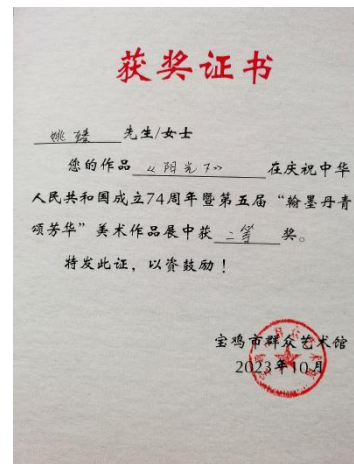 获奖证书
姚臻 先生/女士
您的作品 《阳光下》 在庆祝中华
人民共和国成立74周年暨第五届“翰墨丹青
颂芳华”美术作品展中获 二等 奖。
特发此证，以资鼓励！
宝鸡市群众艺术馆
2023年10月
宝鸡市群众艺术馆